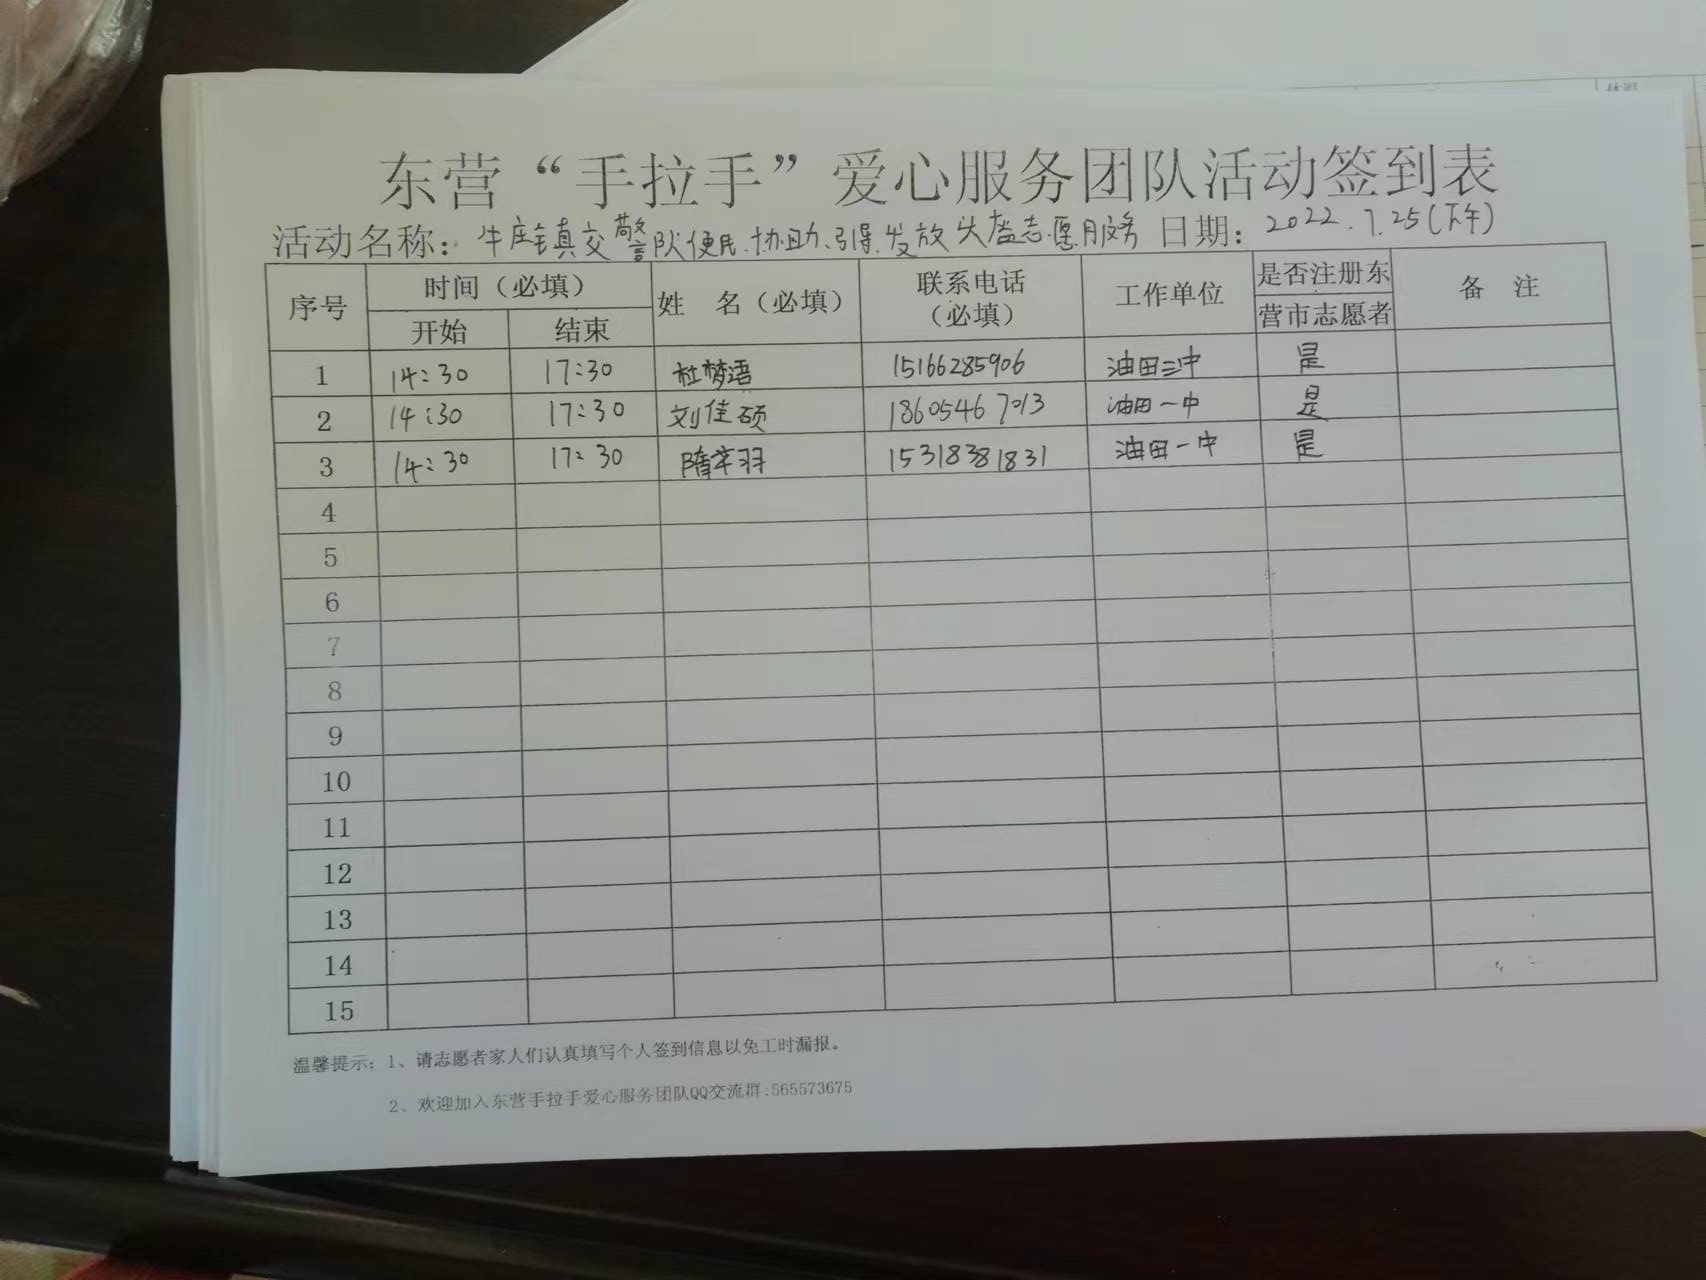 东营“手拉手”爱心服务团队活动签到表
活动名称：牛庄镇交警队便民.协助.引导.发放头盔志愿服务 日期：2022.7.25(下午)
序号 时间（必填） 姓 名（必填） 联系电话（必填） 工作单位 是否注册东营市志愿者 备 注
开始 结束
1 14:30 17:30 杜梦语 15166285906 油田三中 是
2 14:30 17:30 刘佳硕 18605467013 油田一中 是
3 14:30 17:30 隋 羽 15318381831 油田一中 是
4
5
6
7
8
9
10
11
12
13
14
15
温馨提示：1、请志愿者家人们认真填写个人签到信息以免工时漏报。
2、欢迎加入东营手拉手爱心服务团队QQ交流群:565573675